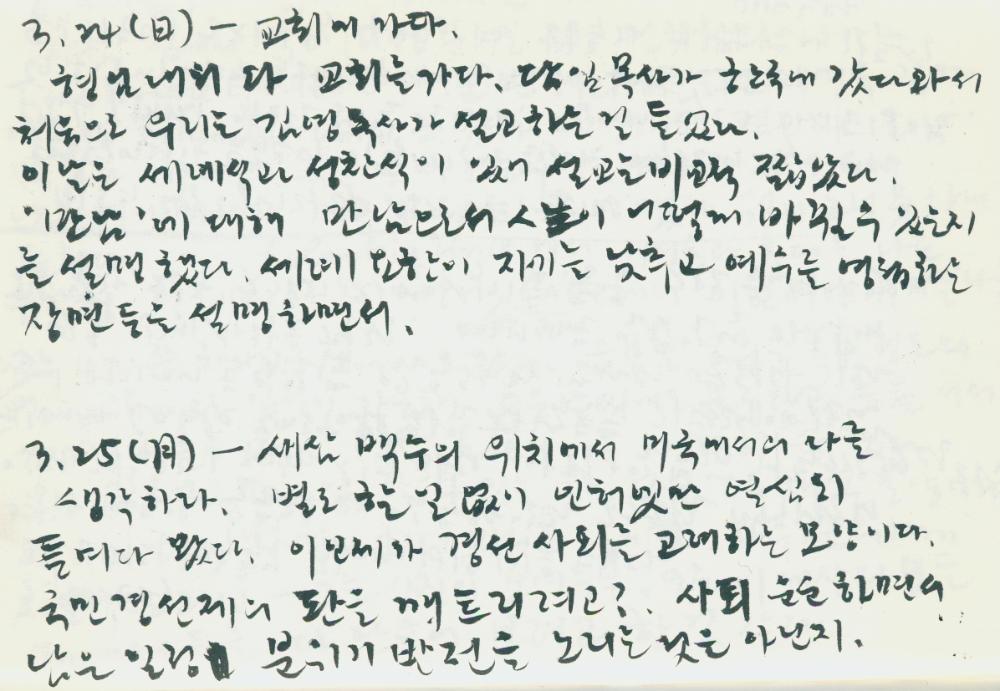 3.24(日) - 교회에 가다.
형님 내외 다 교회를 가다. 담임목사가 한국에 갔다와서
처음으로 우리는 김명 목사가 설교하는 걸 들었다.
이날은 세례식과 성찬식이 있어 설교는 비교적 짧았다.
'만남'에 대해 만남으로서 人生이 어떻게 바뀔 수 있는지
를 설명했다. 세례 요한이 자기를 낮추고 예수를 영접하는
장면 등을 설명하면서.
3.25(月) - 새삼 백수의 위치에서 미국에서의 나를
생각하다. 별로 할 일 없이 인터넷만 열심히
들여다 봤다. 이인제가 경선 사퇴를 고려하는 모양이다.
국민경선제의 판을 깨트리려고? 사퇴 운운하면서
남은 일정 분위기 반전을 노리는 것은 아닌지.